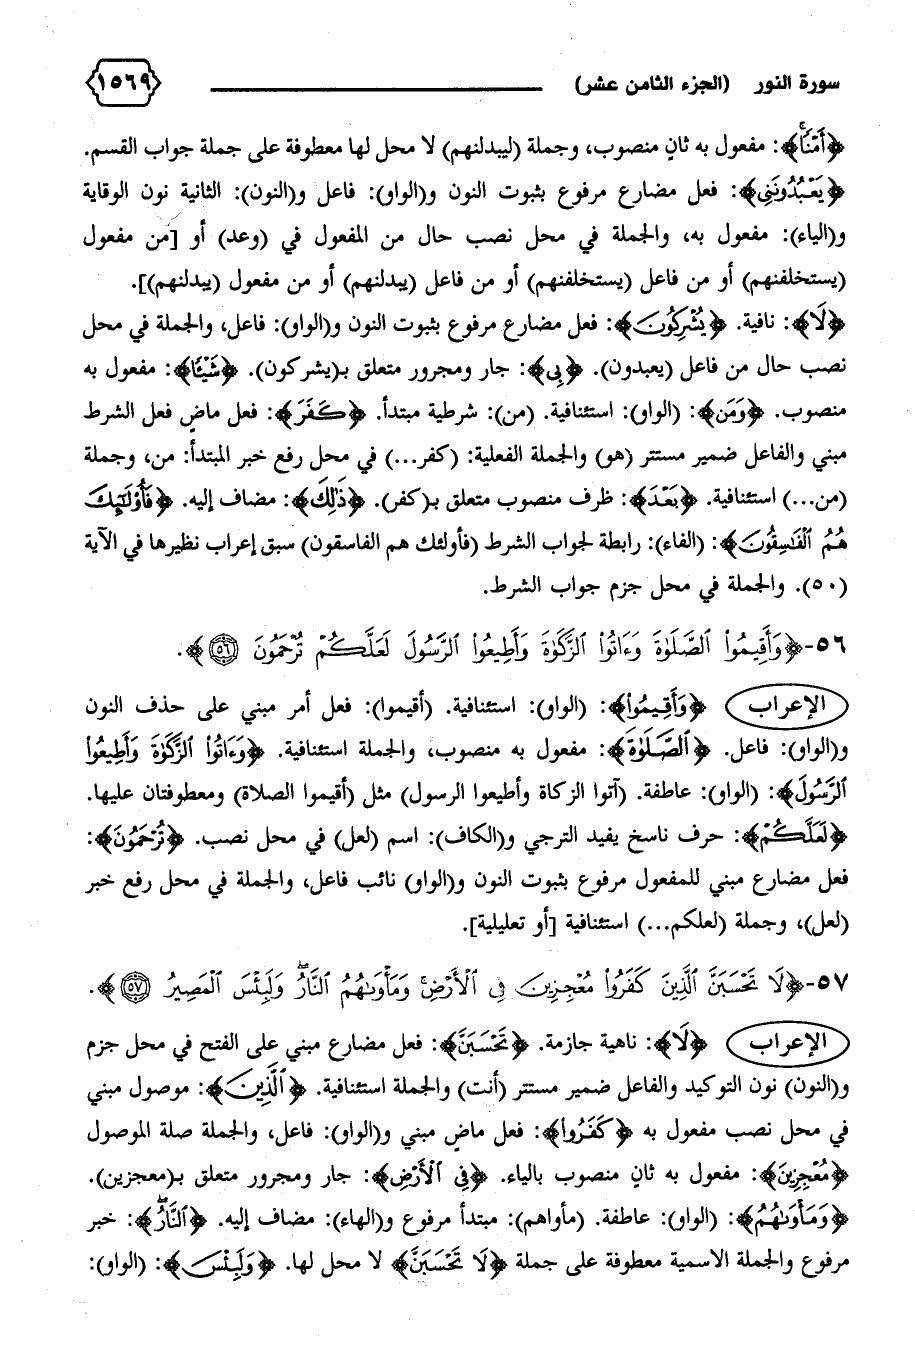 سورة النور (الجزء الثامن عشر) ١٥٦٩
﴿أَمْنًا﴾: مفعول به ثانٍ منصوب، وجملة (ليبدلنهم) لا محل لها معطوفة على جملة جواب القسم.
﴿يَعْبُدُونَنِي﴾: فعل مضارع مرفوع بثبوت النون و(الواو): فاعل و(النون): الثانية نون الوقاية
و(الياء): مفعول به، والجملة في محل نصب حال من المفعول في (وعد) أو [من مفعول
(يستخلفنهم) أو من فاعل (يستخلفنهم) أو من فاعل (يبدلنهم) أو من مفعول (يبدلنهم)].
﴿لَا﴾: نافية. ﴿يُشْرِكُونَ﴾: فعل مضارع مرفوع بثبوت النون و(الواو): فاعل، والجملة في محل
نصب حال من فاعل (يعبدون). ﴿بِي﴾: جار ومجرور متعلق بـ(يشركون). ﴿شَيْئًا﴾: مفعول به
منصوب. ﴿وَمَن﴾: (الواو): استئنافية. (من): شرطية مبتدأ. ﴿كَفَرَ﴾: فعل ماضٍ فعل الشرط
مبني والفاعل ضمير مستتر (هو) والجملة الفعلية: (كفر...) في محل رفع خبر المبتدأ: من، وجملة
(من...) استئنافية. ﴿بَعْدَ﴾: ظرف منصوب متعلق بـ(كفر). ﴿ذَٰلِكَ﴾: مضاف إليه. ﴿فَأُولَٰئِكَ
هُمُ الْفَاسِقُونَ﴾: (الفاء): رابطة لجواب الشرط (فأولئك هم الفاسقون) سبق إعراب نظيرها في الآية
(٥٠). والجملة في محل جزم جواب الشرط.
٥٦-﴿وَأَقِيمُوا۟ ٱلصَّلَوٰةَ وَءَاتُوا۟ ٱلزَّكَوٰةَ وَأَطِيعُوا۟ ٱلرَّسُولَ لَعَلَّكُمْ تُرْحَمُونَ ۝٥٦﴾.
الإعراب ﴿وَأَقِيمُوا۟﴾: (الواو): استئنافية. (أقيموا): فعل أمر مبني على حذف النون
و(الواو): فاعل. ﴿ٱلصَّلَوٰةَ﴾: مفعول به منصوب، والجملة استئنافية. ﴿وَءَاتُوا۟ ٱلزَّكَوٰةَ وَأَطِيعُوا۟
ٱلرَّسُولَ﴾: (الواو): عاطفة. (آتوا الزكاة وأطيعوا الرسول) مثل (أقيموا الصلاة) ومعطوفتان عليها.
﴿لَعَلَّكُمْ﴾: حرف ناسخ يفيد الترجي و(الكاف): اسم (لعل) في محل نصب. ﴿تُرْحَمُونَ﴾:
فعل مضارع مبني للمفعول مرفوع بثبوت النون و(الواو) نائب فاعل، والجملة في محل رفع خبر
(لعل)، وجملة (لعلكم...) استئنافية [أو تعليلية].
٥٧-﴿لَا تَحْسَبَنَّ ٱلَّذِينَ كَفَرُوا۟ مُعْجِزِينَ فِي ٱلْأَرْضِ ۚ وَمَأْوَىٰهُمُ ٱلنَّارُ ۖ وَلَبِئْسَ ٱلْمَصِيرُ ۝٥٧﴾.
الإعراب ﴿لَا﴾: ناهية جازمة. ﴿تَحْسَبَنَّ﴾: فعل مضارع مبني على الفتح في محل جزم
و(النون) نون التوكيد والفاعل ضمير مستتر (أنت) والجملة استئنافية. ﴿ٱلَّذِينَ﴾: موصول مبني
في محل نصب مفعول به ﴿كَفَرُوا۟﴾: فعل ماضٍ مبني و(الواو): فاعل، والجملة صلة الموصول
﴿مُعْجِزِينَ﴾: مفعول به ثانٍ منصوب بالياء. ﴿فِي ٱلْأَرْضِ﴾: جار ومجرور متعلق بـ(معجزين).
﴿وَمَأْوَىٰهُمُ﴾: (الواو): عاطفة. (مأواهم): مبتدأ مرفوع و(الهاء): مضاف إليه. ﴿ٱلنَّارُ ۖ﴾: خبر
مرفوع والجملة الاسمية معطوفة على جملة ﴿لَا تَحْسَبَنَّ﴾ لا محل لها. ﴿وَلَبِئْسَ﴾: (الواو):